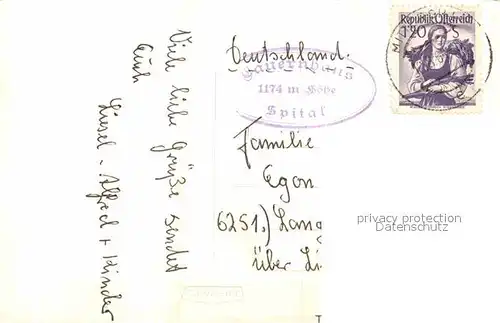 Viele liebe Grüße sendet
Euch
Liesel - Alfred + Kinder
Deutschland.
Tauernhaus
1174 m Höhe
Spital
Republik Österreich
1.20 S
Familie
Egon
6251.) Lang
über Li
privacy protection
Datenschutz